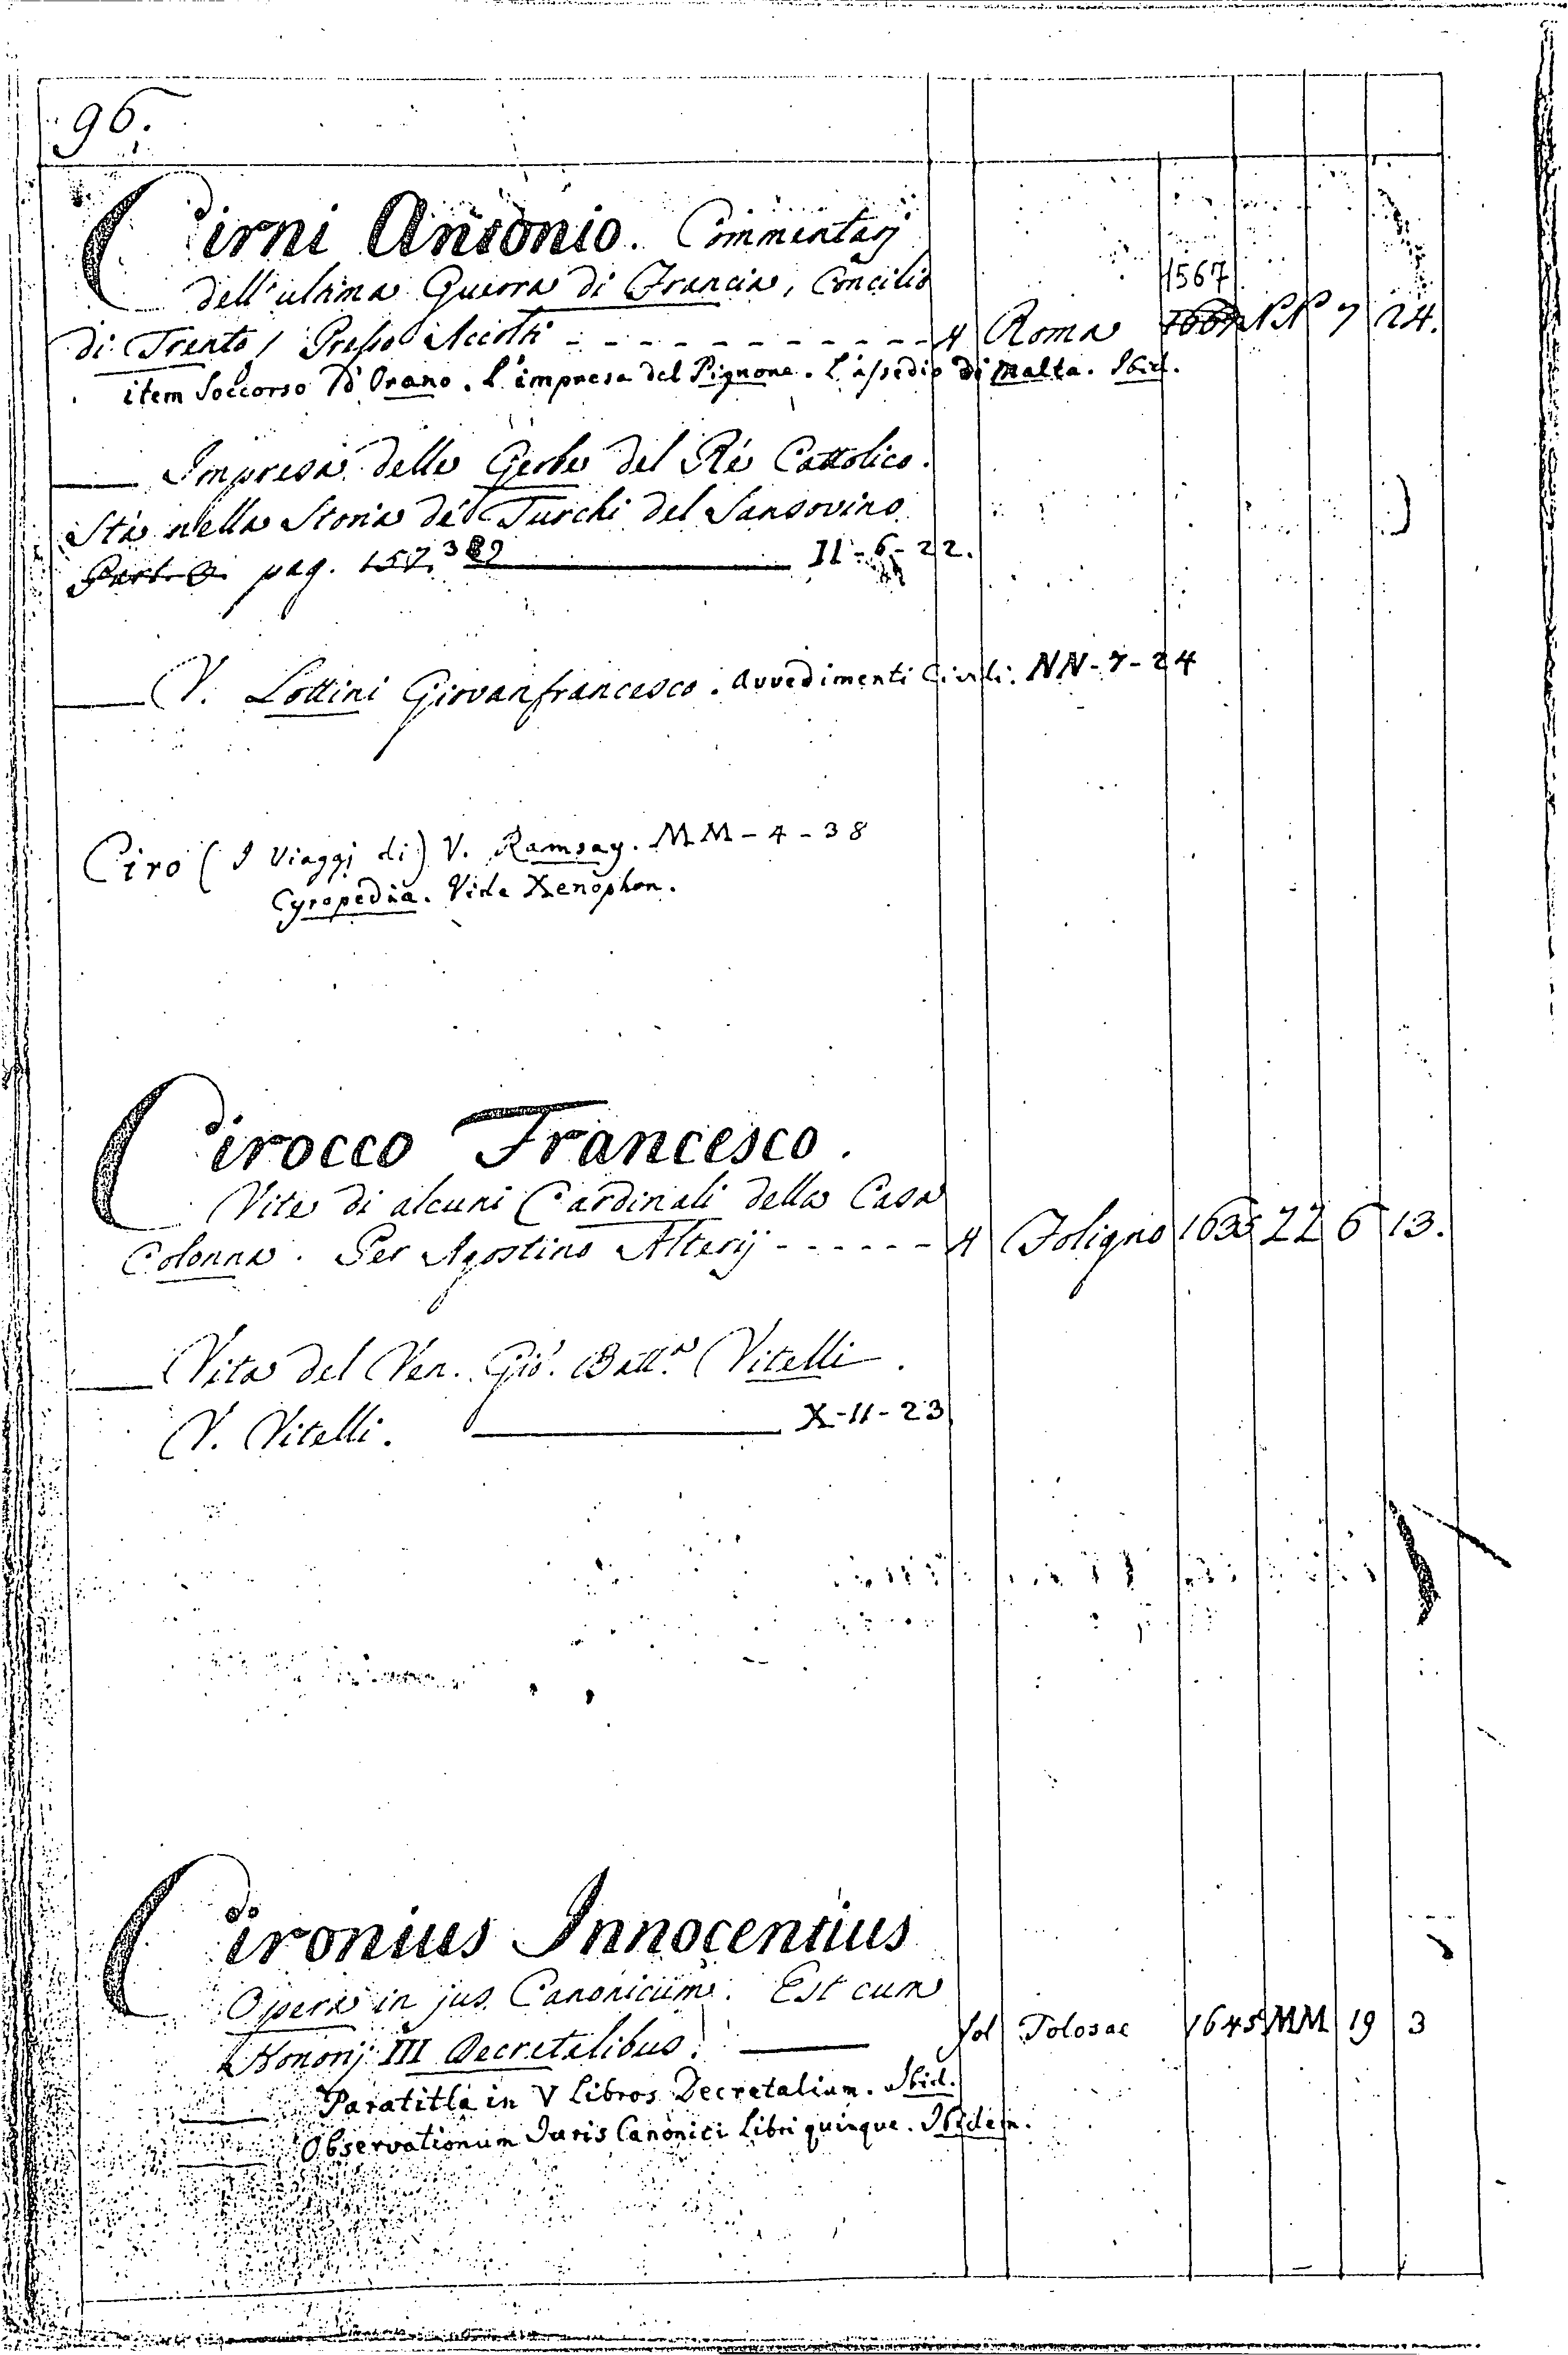 96.
Cirni Antonio. Commentarj
dell'ultima Guerra di Francia, Concilio
1567
di Trento / Presso Accolti - - - - - - - - - - - 4 Roma NN 7 24.
item Soccorso d'Orano. L'impresa del Pignone. L'assedio di Malta. Ibid.
Impresa delle Gerbe del Rè Cattolico.
Stà nella Storia de' Turchi del Sansovino
Parte pag. 157. 389 II-6-22.
V. Lottini Giovanfrancesco. Avvedimenti Civili. NN-7-24
Ciro (I Viaggi di) V. Ramsay. MM-4-38
Cyropedia. Vide Xenophon.
Cirocco Francesco.
Vite di alcuni Cardinali della Casa
Colonna. Per Agostino Alterij - - - - - - 4 Foligno 1635 ZZ 6 13.
Vita del Ven. Gio. Batt.a Vitelli.
V. Vitelli. X-11-23
Cironius Innocentius
Opera in jus Canonicum. Est cum
Honorij III Decretalibus. fol Tolosae 1645 MM 19 3
Paratitla in V Libros Decretalium. Ibid.
Observationum Juris Canonici Libri quinque. Ibidem.